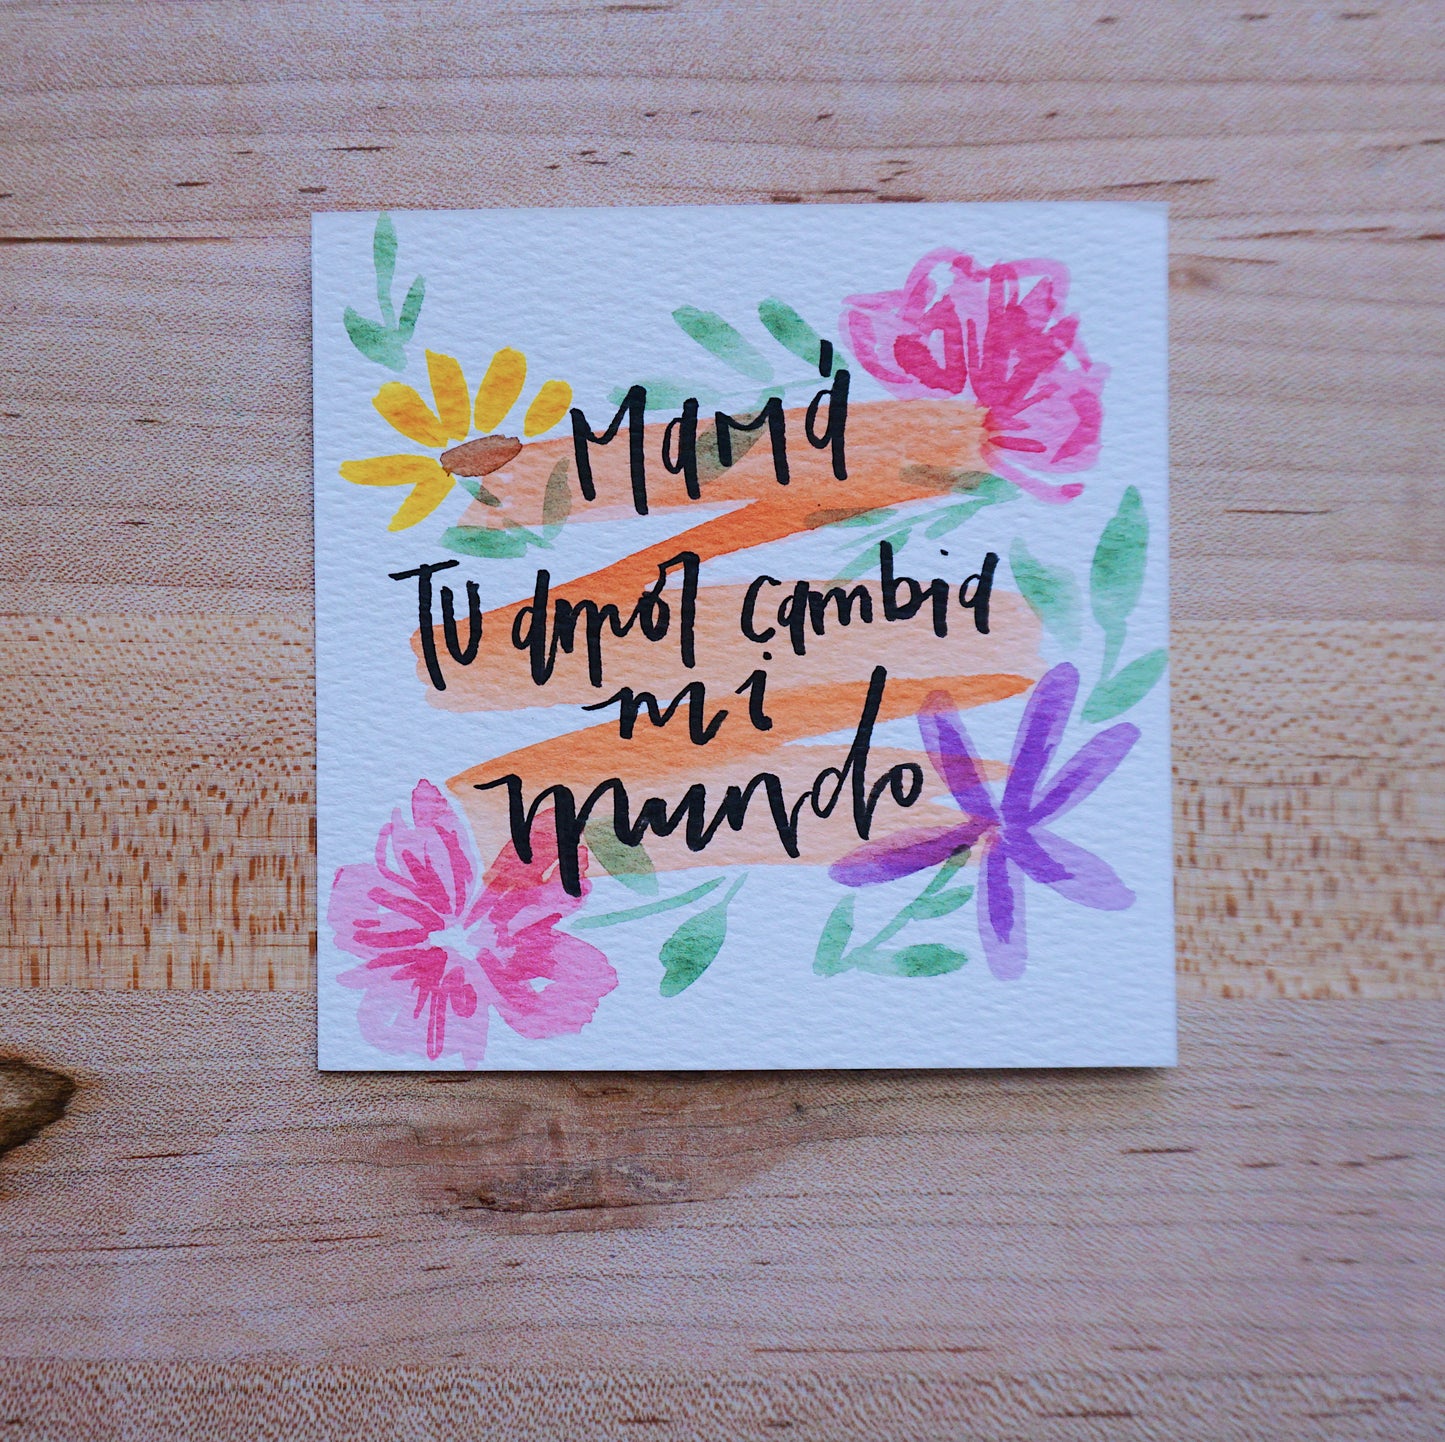 Mamá
Tu amor cambia
mi
mundo